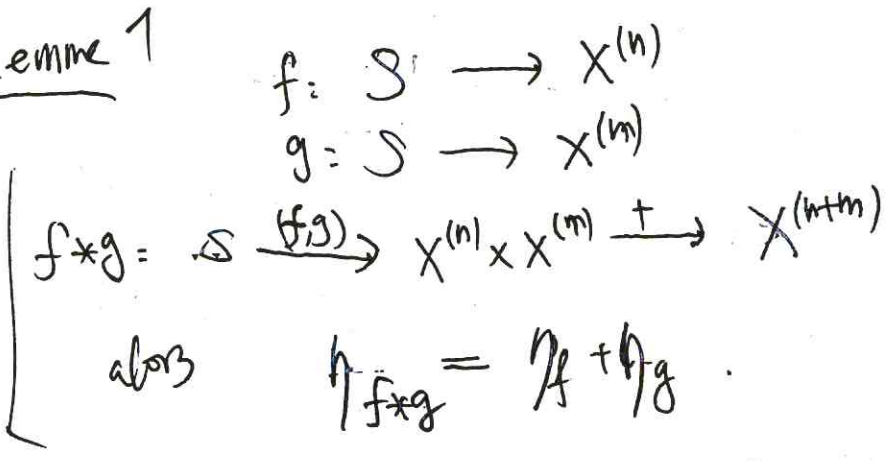 emme 1
f: S ⟶ X^(n)
g: S ⟶ X^(m)
f*g: S —(f,g)→ X^(n) × X^(m) —+→ X^(n+m)
alors η_{f*g} = η_f + η_g .